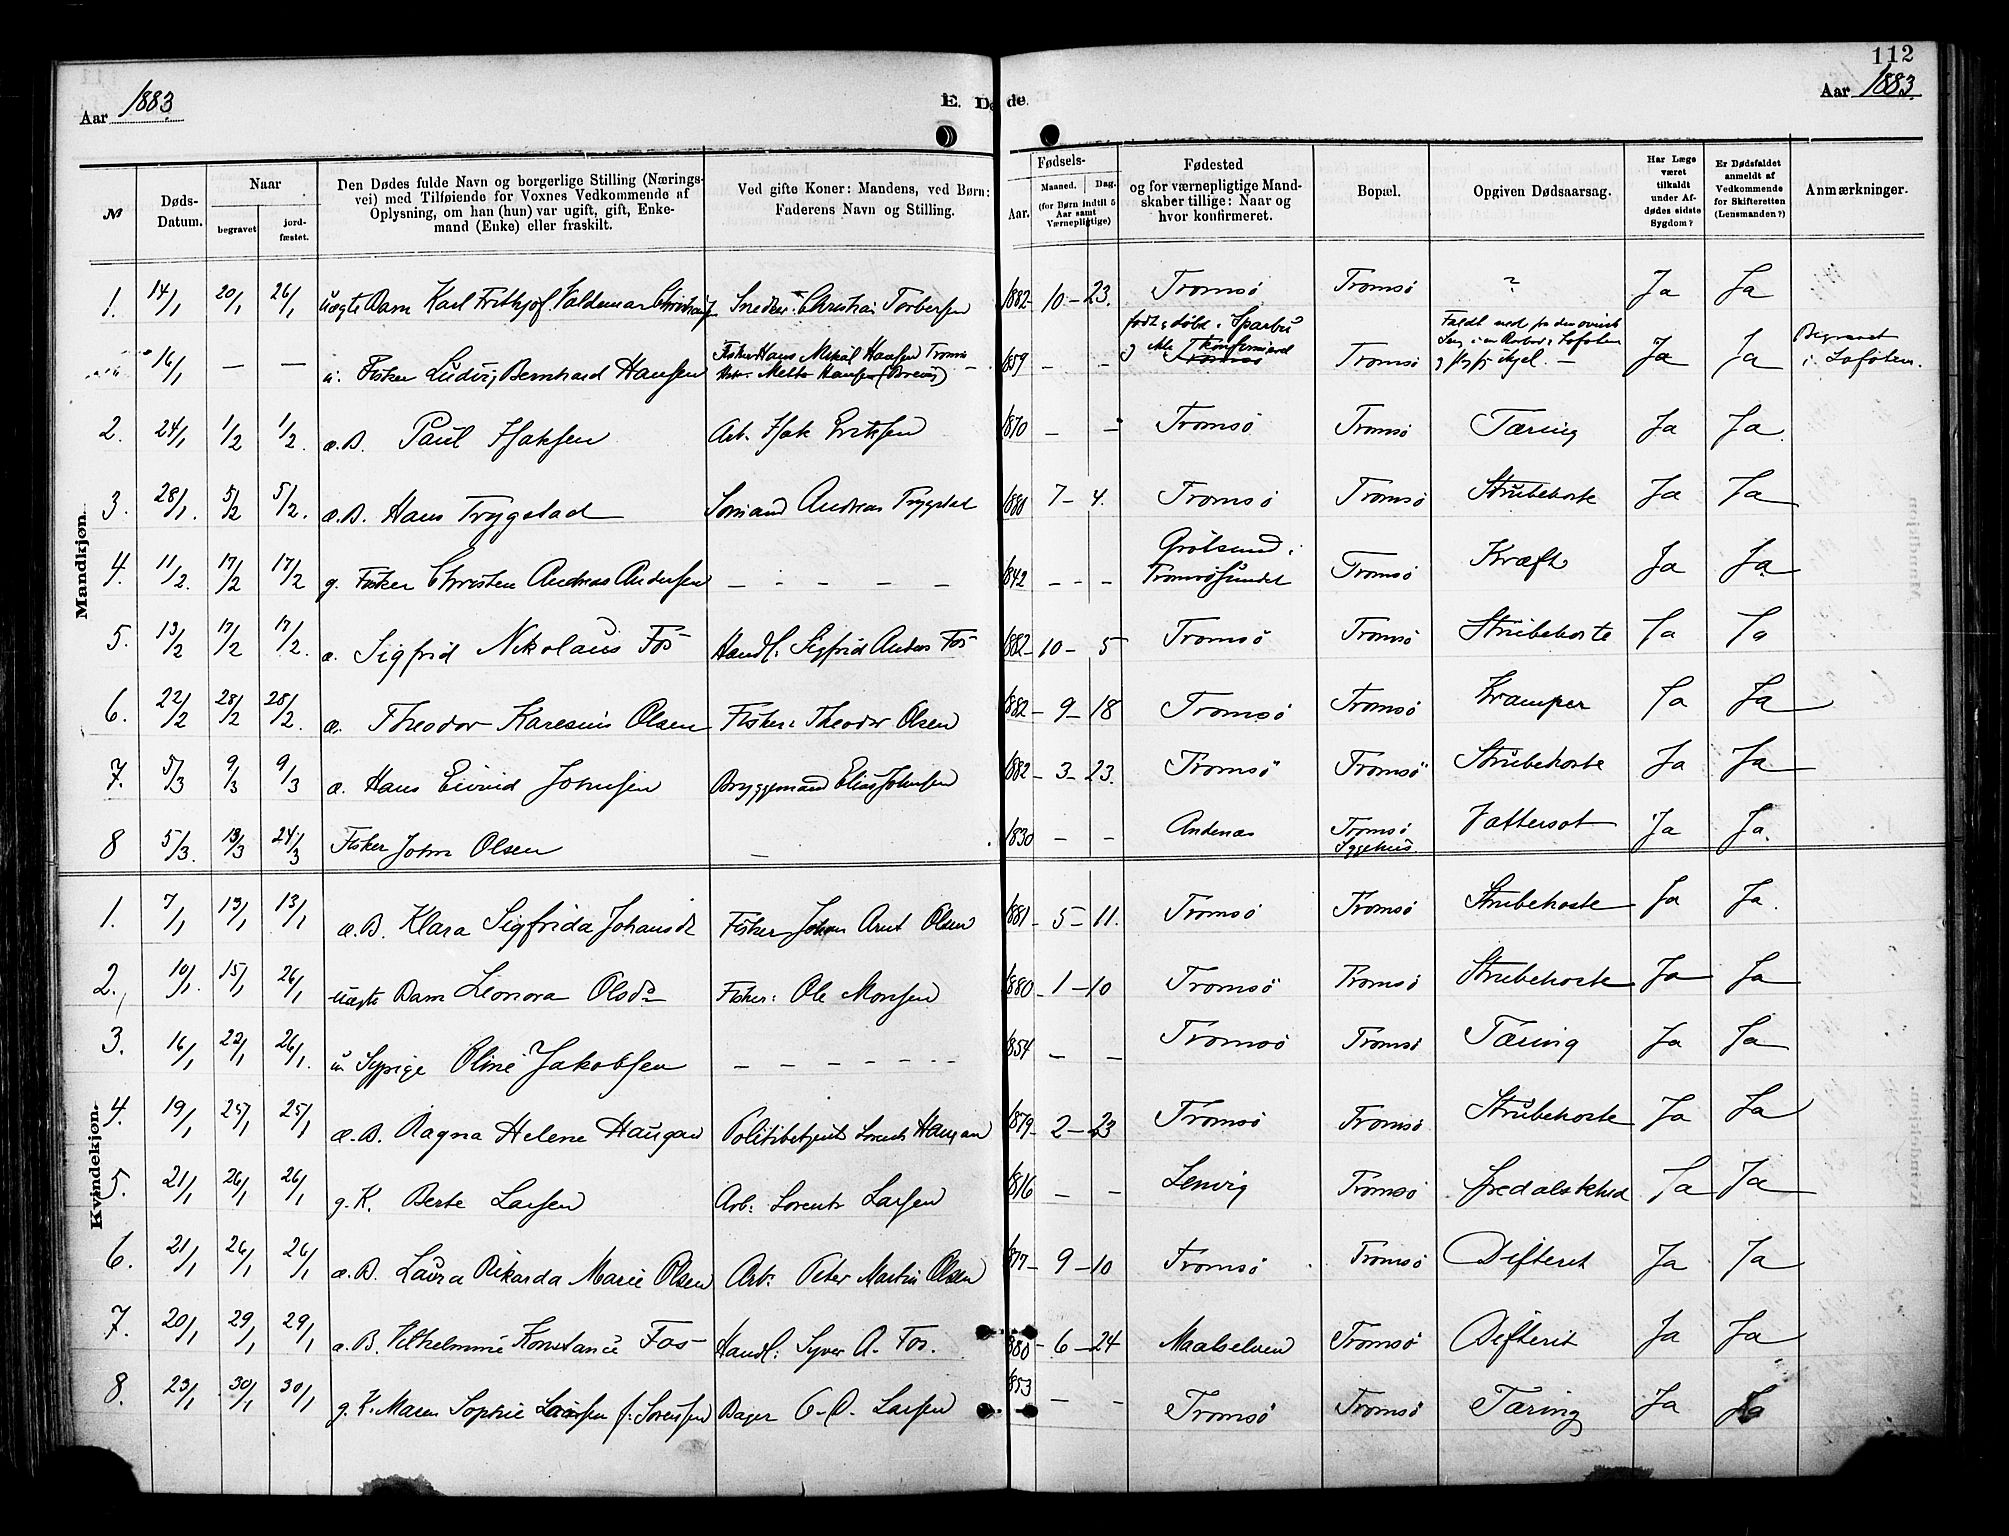 112
Aar 1883.
E. Døde.
Aar 1883.
№
Døds-Datum.
Naar
begravet
jord-fæstet.
Den Dødes fulde Navn og borgerlige Stilling (Nærings-
vei) med Tilføiende for Voxnes Vedkommende af
Oplysning, om han (hun) var ugift, gift, Enke-
mand (Enke) eller fraskilt.
Ved gifte Koner: Mandens, ved Børn:
Faderens Navn og Stilling.
Fødsels-
Aar.
Maaned.
Dag.
(for Børn indtil 5
Aar samt
Værnepligtige)
Fødested
og for værnepligtige Mand-
skaber tillige: Naar og
hvor konfirmeret.
Bopæl.
Opgiven Dødsaarsag.
Har Læge
været
tilkaldt
under Af-
dødes sidste
Sygdom?
Er Dødsfaldet
anmeldt af
Vedkommende
for Skifteretten
(Lensmanden?)
Anmærkninger.
Mandkjøn.
1. 14/1 20/1 26/1 uægte Barn Karl Frithjof Valdemar Christiansen Snedker Christian Torbersen 1882 - 10 - 23. Tromsø Tromsø ? Ja Ja
16/1 — — u. Fisker Ludvig Bernhard Hansen Fisker Hans Mikal Hansen Tromsø 1859 - - født & døbt i Sparbu Tromsø Faldt ned fra Ja Ja Begravet i Lofoten.
2. 24/1 1/2 1/2. æ. B. Paul Isaksen Arb. Isak Eriksen 1870 — — Tromsø Tromsø Tæring Ja Ja.
3. 28/1. 5/2 5/2. æ. B. Hans Trygstad Sømand Andreas Trygstad 1880 7 - 4. Tromsø Tromsø Strubehoste Ja Ja
4. 11/2. 17/2 17/2 g. Fisker Christen Andreas Andersen — — — — — 1842 — — — Grøtsund i Tromsøsundet Tromsø Kræft Ja Ja.
5. 13/2 17/2 17/2. æ. Sigfrid Nikolaus Fos Handl. Sigfrid Anders Fos 1882 - 10 - 5 Tromsø Tromsø Strubehoste Ja Ja
6. 22/2 28/2 28/2. æ. Theodor Karesius Olsen Fisker: Theodor Olsen 1882 - 9 - 18 Tromsø Tromsø Kramper Ja Ja
7. 5/3 9/3 9/3 æ. Hans Eivind Johnsen Bryggemand Elias Johnsen 1882 - 3 - 23. Tromsø Tromsø Strubehoste Ja Ja
8 5/3. 13/3 24/3 Fisker John Olsen — 1830 - - Andenæs Tromsø Sygehus. Vattersot Ja Ja.
Kvindekjøn.
1. 7/1 13/1 13/1 æ. B. Klara Sigfrida Johansd. Fisker Johan Arnt Olsen 1881 - 5 - 11. Tromsø Tromsø Strubehoste Ja Ja.
2. 10/1. 15/1 26/1 uægte Barn Leonora Olsdr. Fisker: Ole Monsen 1880 - 1 - 10 Tromsø Tromsø Strubehoste Ja Ja
3. 16/1 22/1 26/1. u. Sypige Oline Jakobsen — — — — — 1854 — — Tromsø Tromsø Tæring Ja Ja
4. 19/1 25/1 25/1 æ. B. Ragna Helene Haugan Politibetjent Lorents Haugan 1879 - 2 - 23 Tromsø Tromsø Strubehoste Ja Ja
5. 21/1 26/1 26/1 g. K. Berte Larsen Arb: Lorents Larsen 1816 — — Lenvig Tromsø Ja Ja
6. 21/1 26/1 26/1 æ. B. Laura Rikarda Marie Olsen Arb. Peter Martin Olsen 1877 - 9 - 10 Tromsø Tromsø Difterit Ja Ja
7. 20/1 29/1 29/1 æ. B. Vilhelmine Konstance Fos Handl: Syver A. Fos. 1880 - 6 - 24 Maalselven Tromsø Difterit Ja Ja
8. 23/1 30/1 30/1 g. K. Maren Sophie Larssen f. Sørensen Bager C. O. Larsen 1853 — — Tromsø Tromsø Tæring Ja Ja